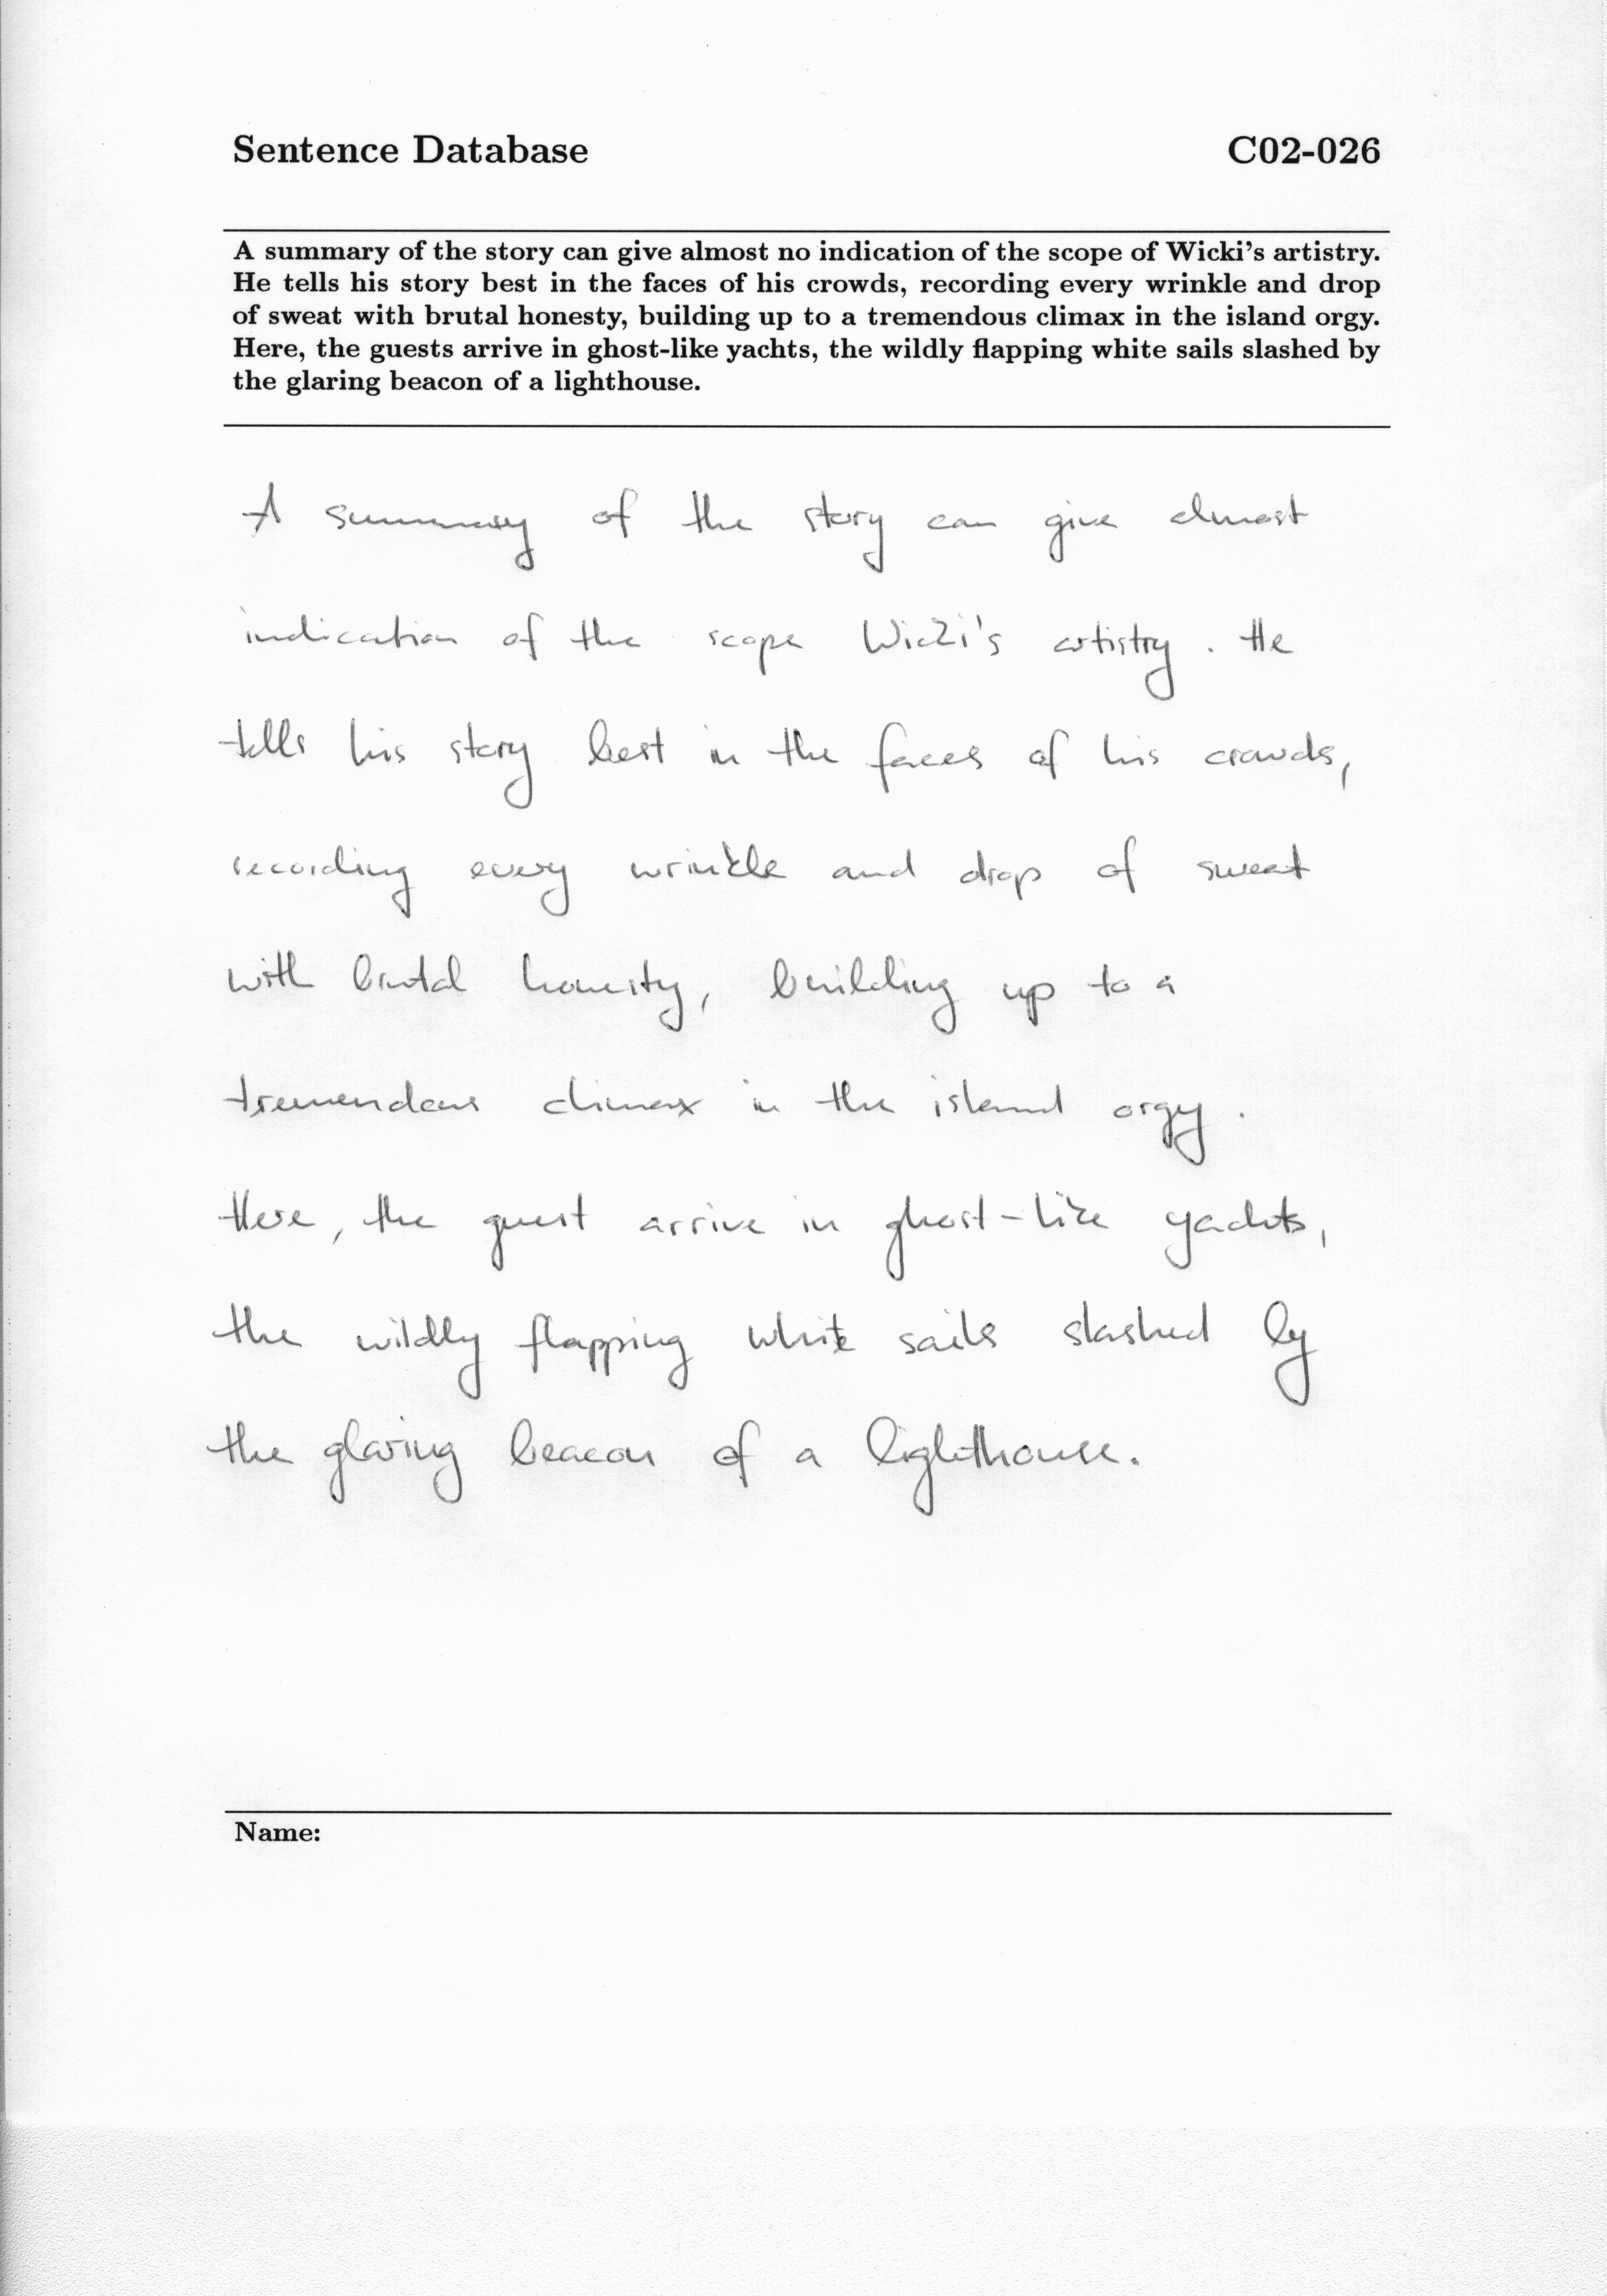 Sentence Database C02-026
A summary of the story can give almost no indication of the scope of Wicki's artistry.
He tells his story best in the faces of his crowds, recording every wrinkle and drop
of sweat with brutal honesty, building up to a tremendous climax in the island orgy.
Here, the guests arrive in ghost-like yachts, the wildly flapping white sails slashed by
the glaring beacon of a lighthouse.
A summary of the story can give almost
indication of the scope Wicki's artistry. He
tells his story best in the faces of his crowds,
recording every wrinkle and drop of sweat
with brutal honesty, building up to a
tremendous climax in the island orgy.
Here, the guest arrive in ghost-like yachts,
the wildly flapping white sails slashed by
the glaring beacon of a lighthouse.
Name: